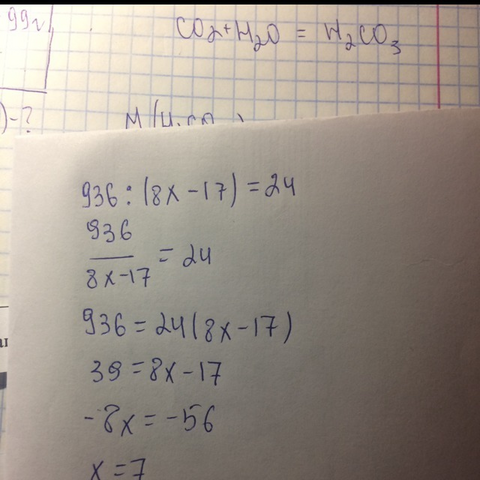 99г
CO2+H2O = H2CO3
)-?
936:(8x-17)=24
936
8x-17 = 24
936=24(8x-17)
39=8x-17
-8x=-56
x=7